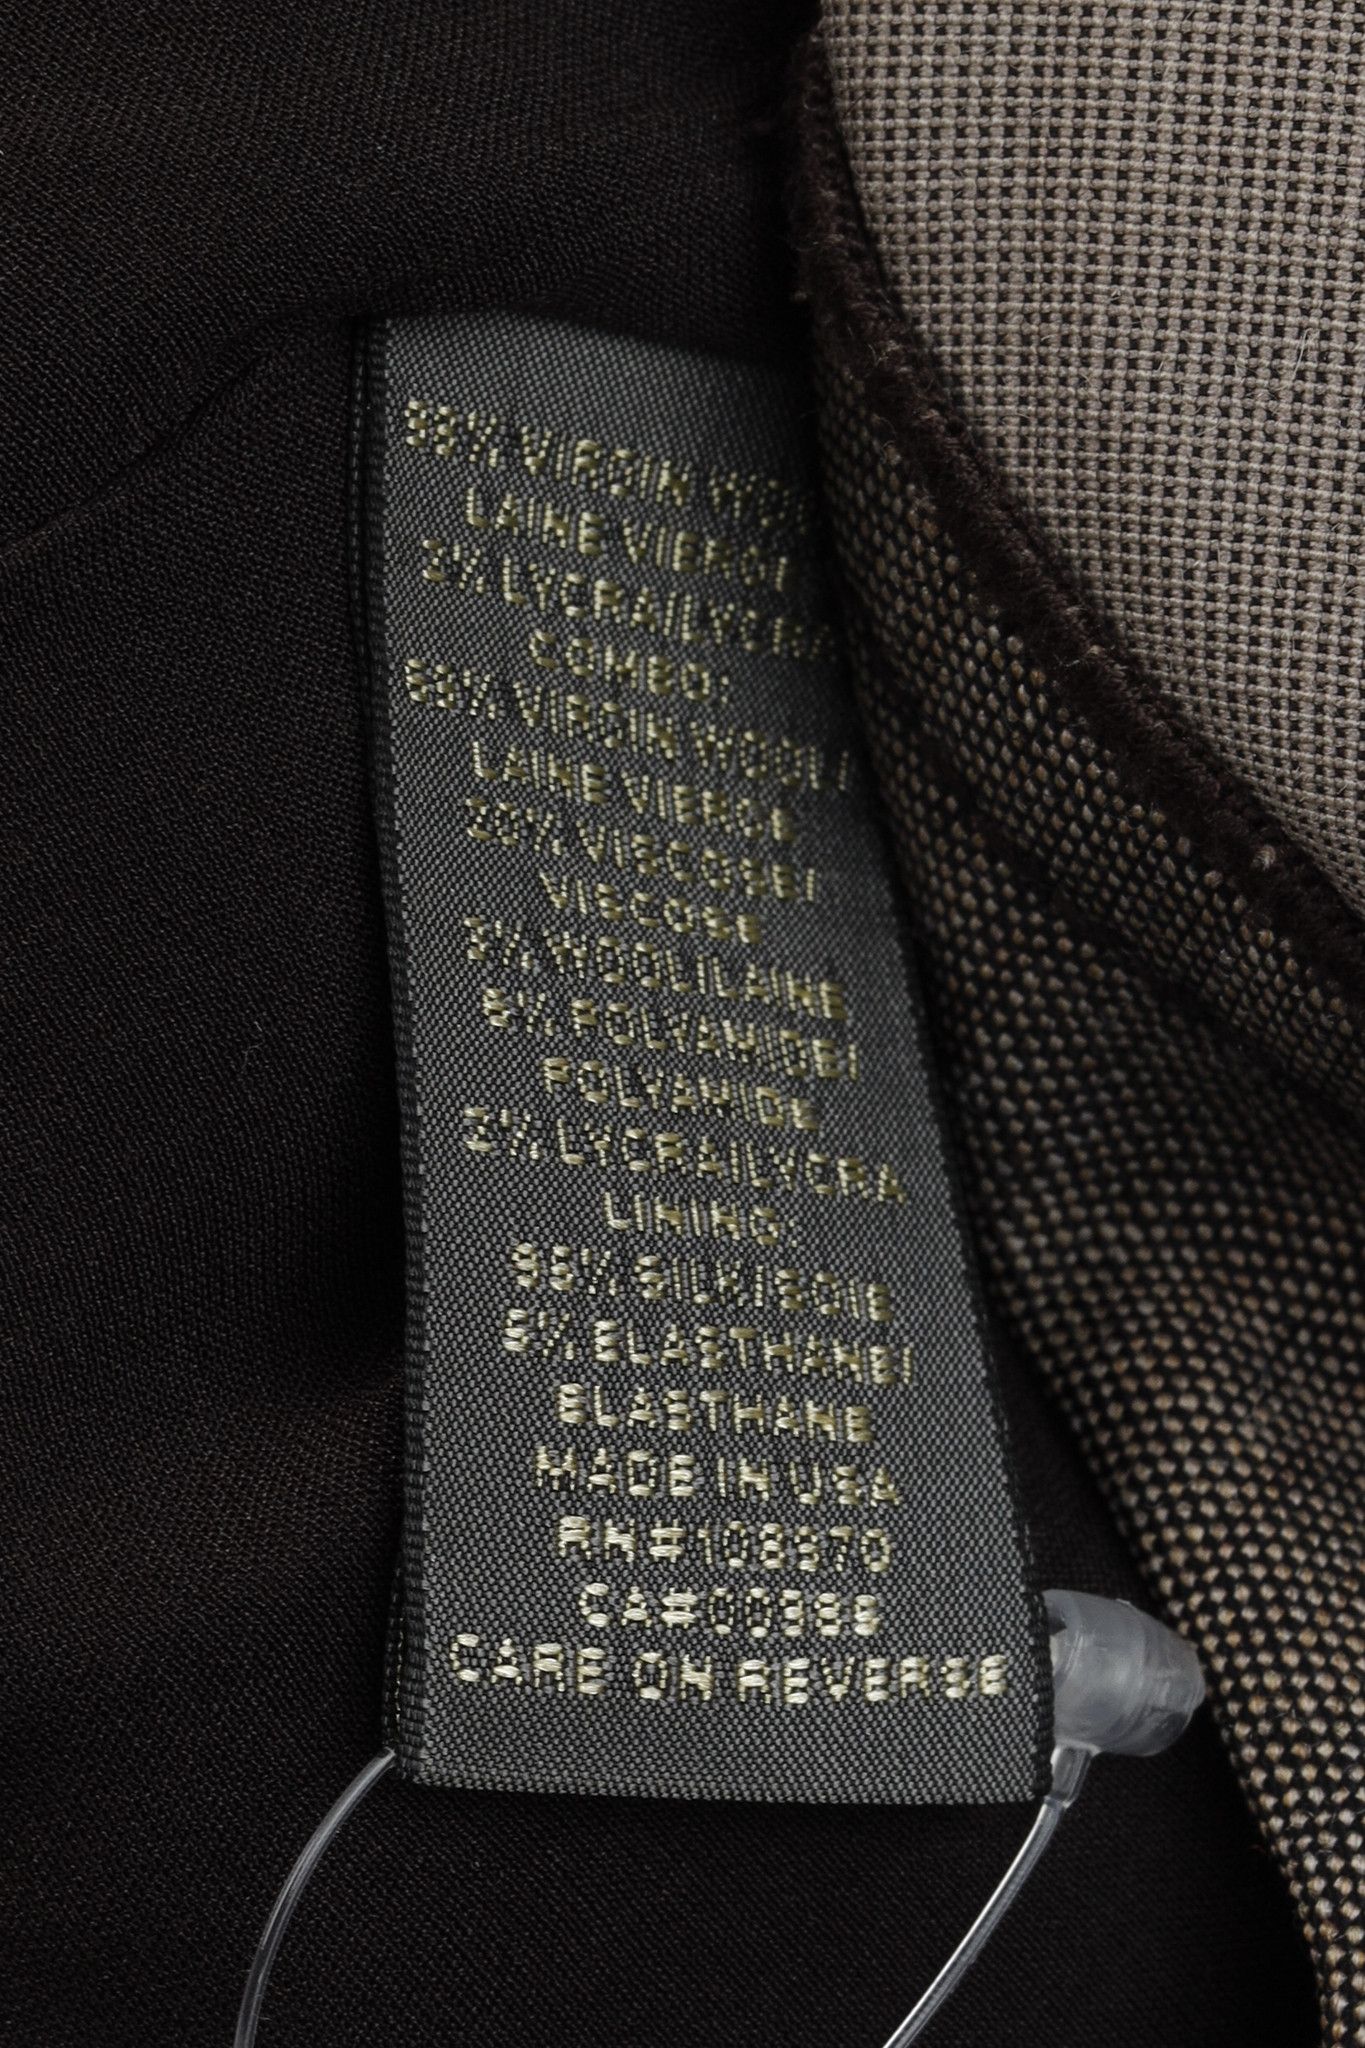 98% VIRGIN WOO
LAINE VIERG
2% LYCRA/LYCRA
COMBO:
65% VIRGIN WOOL/
LAINE VIERGE
20% VISCOSE/
VISCOSE
% WOOL/LAINE
6% POLYAMIDE/
POLYAMIDE
2% LYCRA/LYCRA
LINING:
95% SILK/SOIE
5% ELASTHANE/
ELASTHANE
MADE IN USA
RN#108970
CA#00386
CARE ON REVERSE